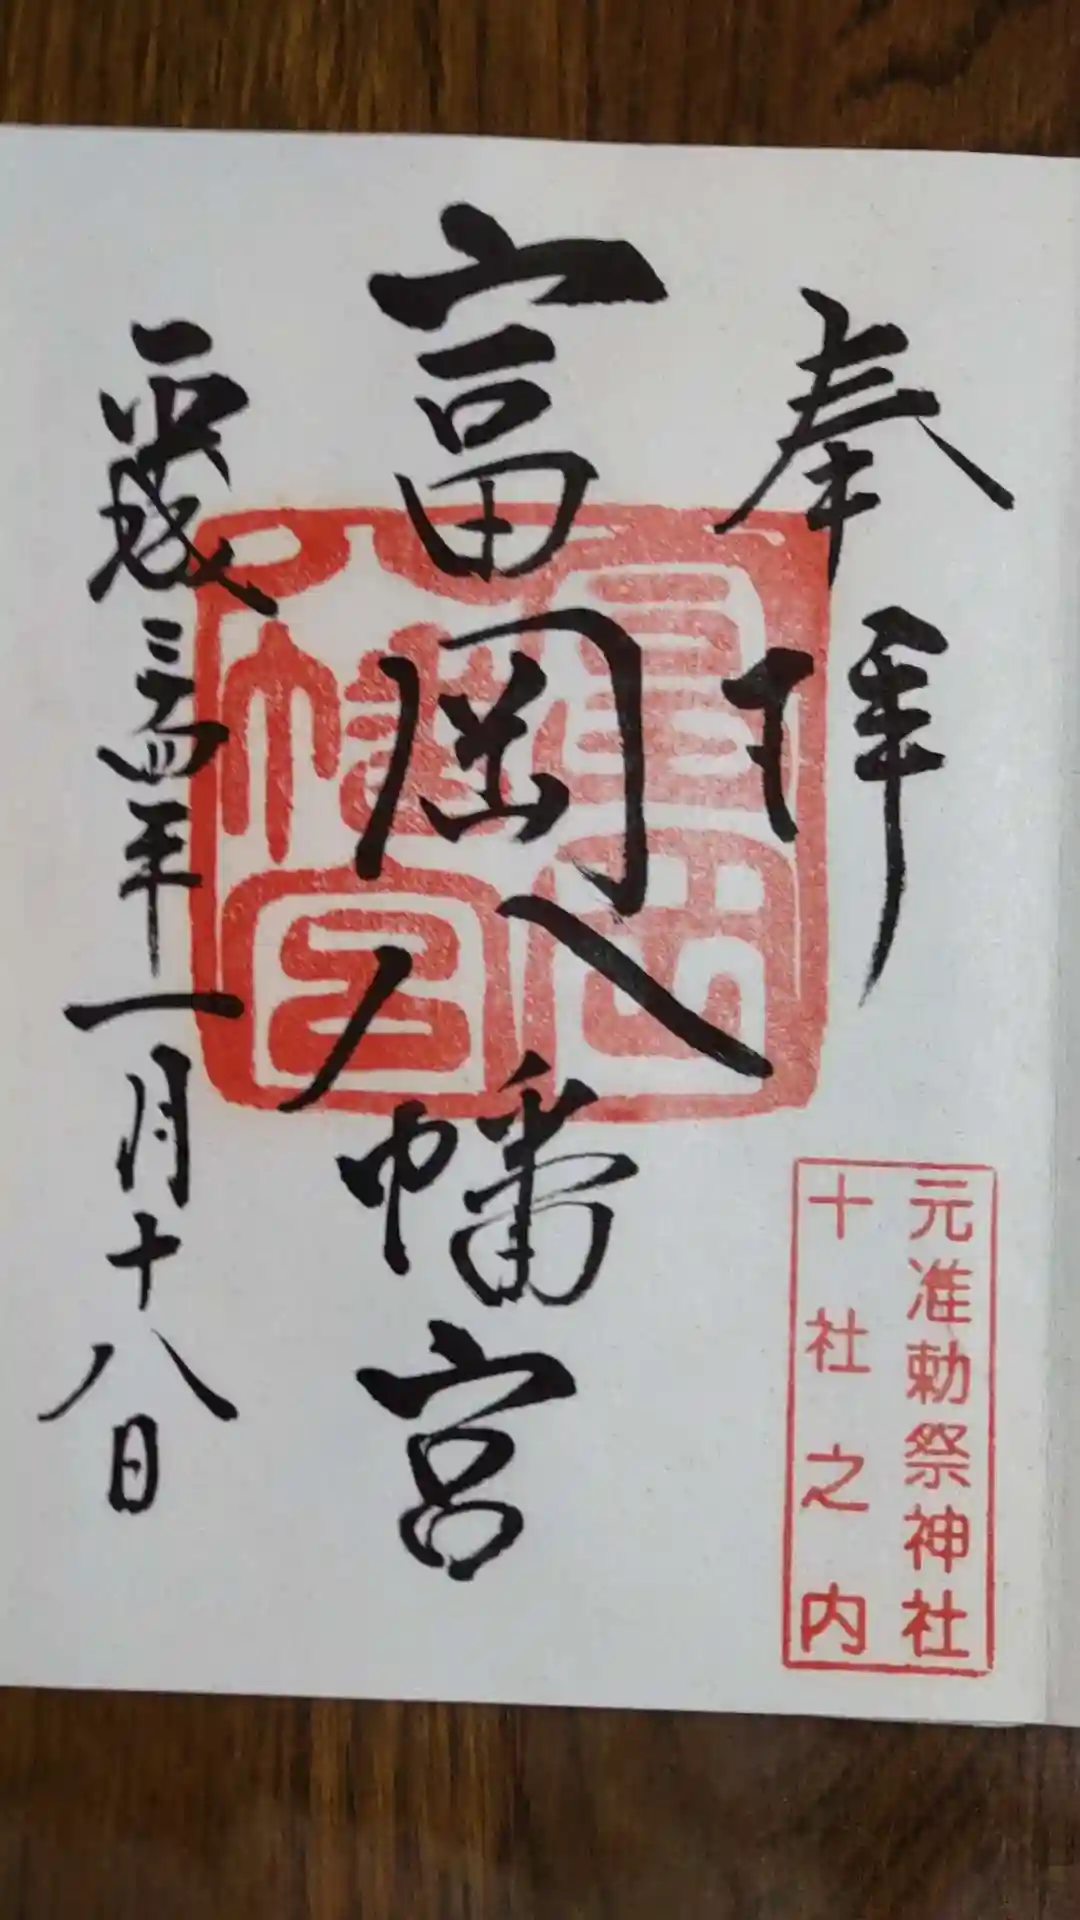 奉拝
元准勅祭神社
十社之内
富岡八幡宮
富岡
八幡宮
平成二十四年一月十八日